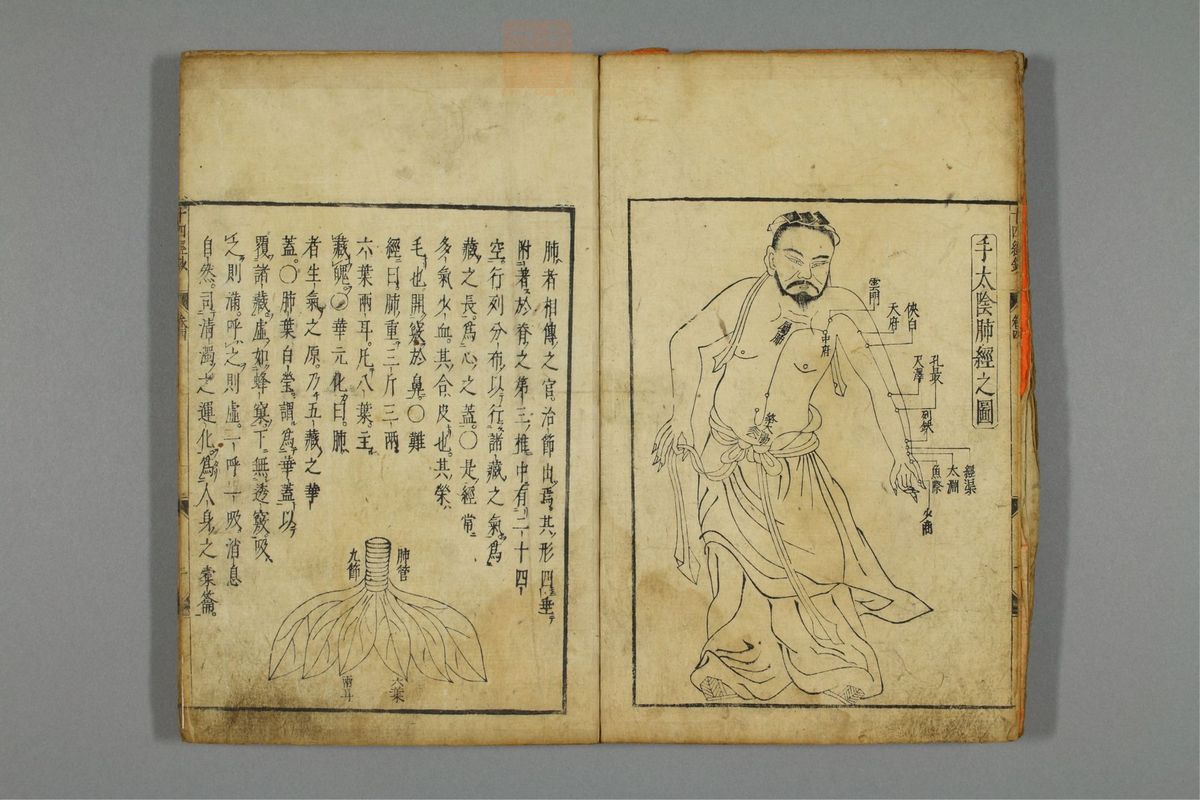 手太陰肺經之圖
雲門
中府
天府
俠白
尺澤
孔最
列缺
經渠
太淵
魚際
少商
肺者相傳之官治節出焉其形四垂
附著於脊之第三椎中有二十四
空行列分布以行諸藏之氣爲
藏之長爲心之蓋〇是經常
多氣少血其合皮也其榮
毛也開竅於鼻〇難
經曰肺重三斤三兩
六葉兩耳凡八葉主
藏魄〇華元化曰肺
者生氣之原乃五藏之華
蓋〇肺葉白瑩謂爲華蓋以
覆諸藏虛如蜂窠下無透竅吸
之則滿呼之則虛一呼一吸消息
自然司清濁之運化爲人身之橐籥
肺管
九節
六葉
兩耳